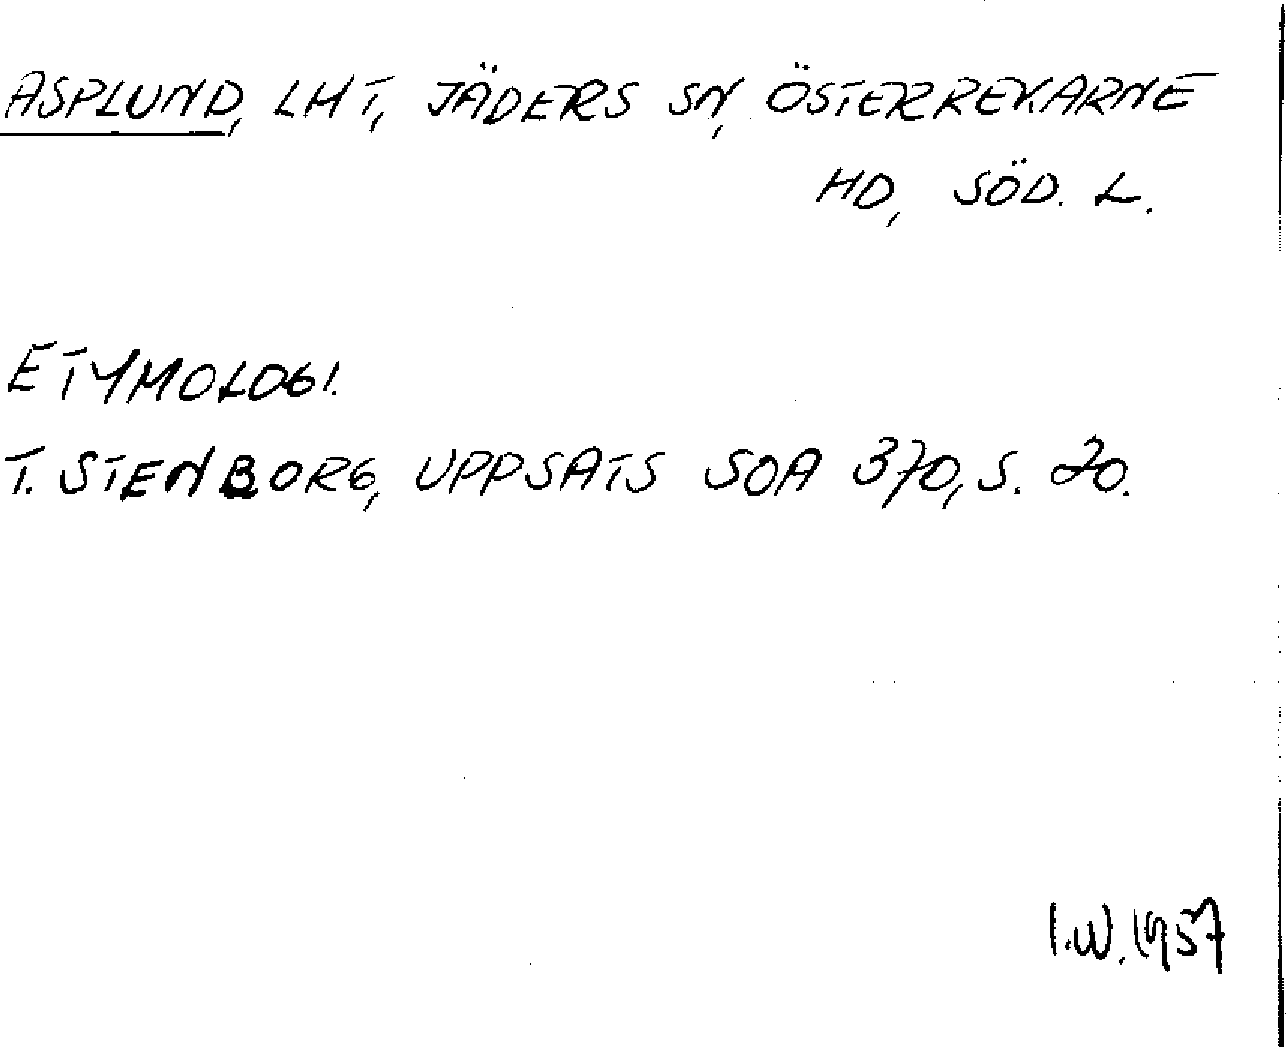 ASPLUND, LHT, JÄDERS SN, ÖSTERREKARNE
HD, SÖD. L.
ETYMOLOGI.
T. STENBORG, UPPSATS SOA 370, S. 20.
I.W. 1957